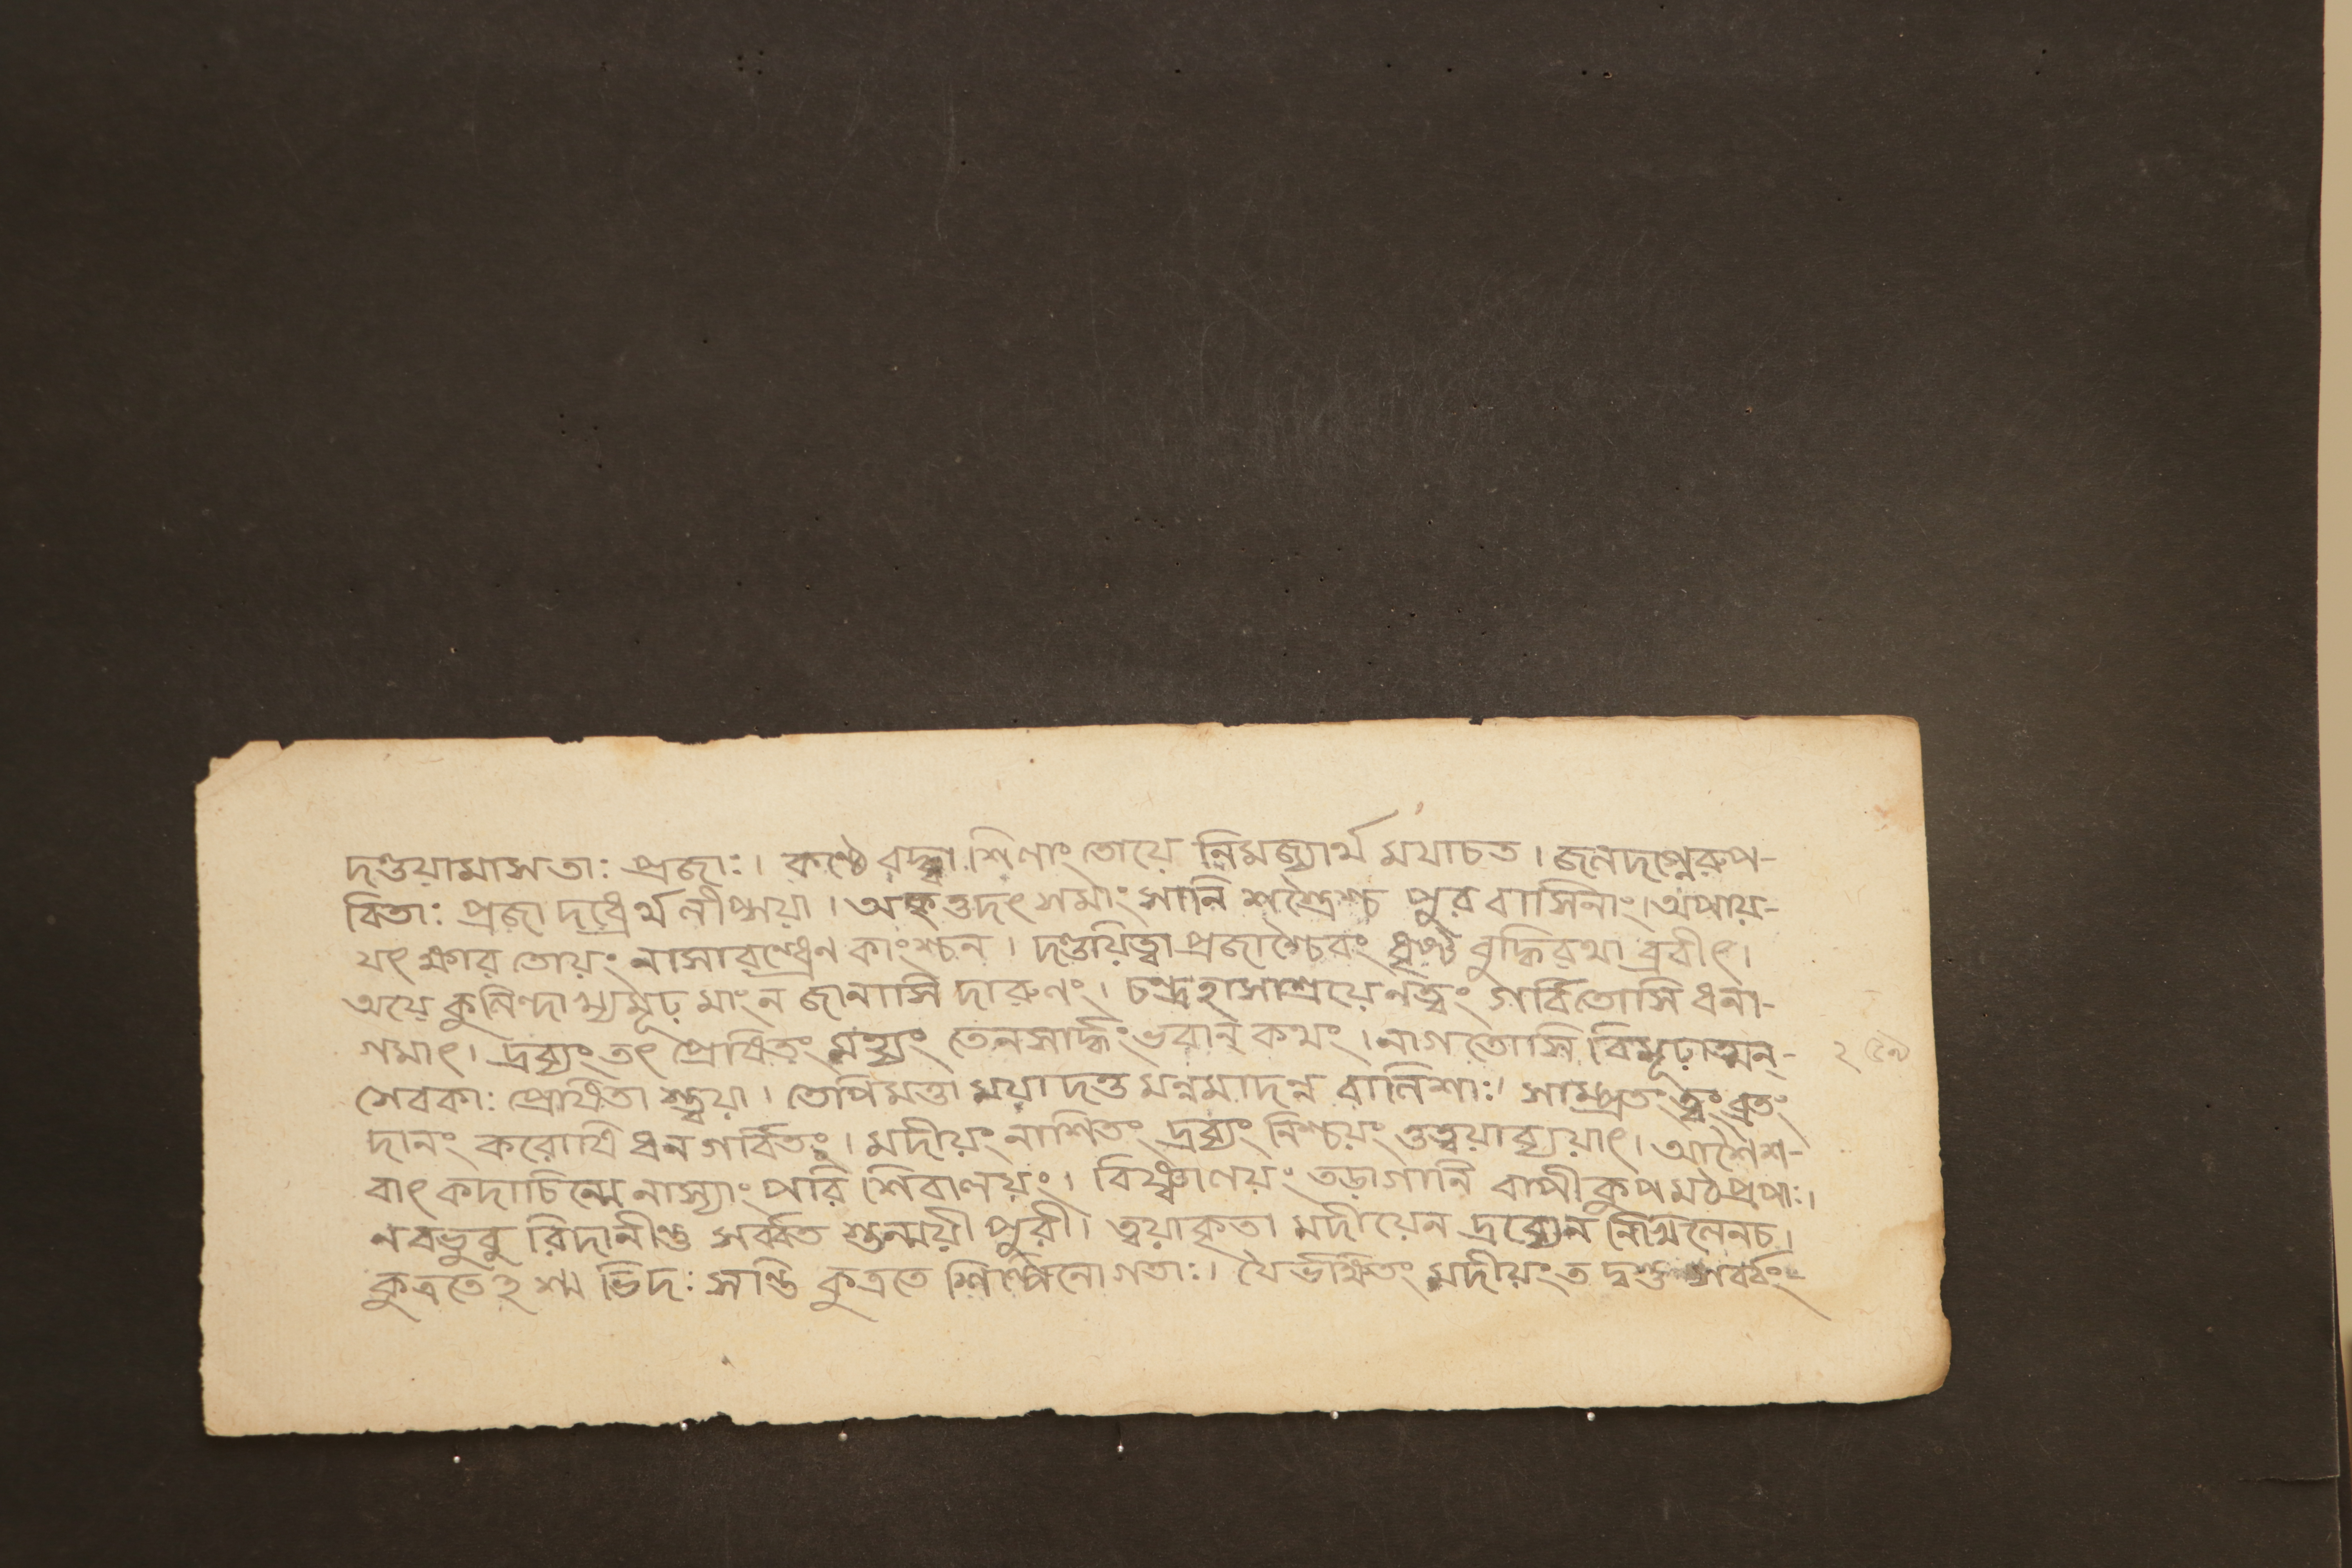 দণ্ডয়ামাস তাঃ প্রজাঃ। কণ্ঠে বদ্ধ্বা শিলাং তোয়ে নিমজ্যার্থ মযাচত। জলদগ্নেরুপ-
বিতাঃ প্রজা দধ্রের্থ লীপ্সয়া। অকৃত্তদৎ সমাং সানি শস্ত্রৈশ্চ পুর বাসিনাং। অপায়-
যৎ ক্ষার তোয়ং নাসারন্ধ্রেন কাংশ্চন। দণ্ডয়িত্বা প্রজাশ্চৈবং ধৃষ্ট বুদ্ধিরথা ব্রবীৎ।
অয়ে কুলিন্দা খ্যমূঢ় মাং ন জানাসি দারুনং। চন্দ্রহাসাশ্রয়েনত্বং গর্বিতোসি ধনা-
গমাৎ। দ্রব্যং তৎ প্রেষিতং মহ্যং তেনসার্দ্ধং ভবান্ কথং। নাগতোসি বিমূঢ়াত্মন্-
সেবকাঃ প্রেষিতা স্ত্বয়া। তেপিমত্তা ময়া দত্ত মন্নমাদন্ন বালিশাঃ। সাম্প্রতং ত্বং ব্রতং
দানং করোষি ধন গর্বিতঃ। মদীয়ং নাশিতং দ্রব্যং নিশ্চয়ং তুত্বয়াব্যয়াৎ। আশৈশ-
বাৎ কদাচিন্মে নাস্যাং পরি শিবালয়ং। বিষ্ণ্বালয়ং তড়াগানি বাপী কুপ মঠ প্রপাঃ।
নবভুবু রিদানীন্তু সর্ব্বত শ্চন্ময়ী পুরী। ত্বয়াকৃতা মদীয়েন দ্রব্যেন নিখিলেনচ।
কুত্রতেহ শ্ম ভিদঃ সন্তি কুত্রতে শিল্পিনো গতাঃ। যৈর্ভক্ষিতং মদীয়ং ত দ্বস্তু সর্ব্বং-
২৫৯